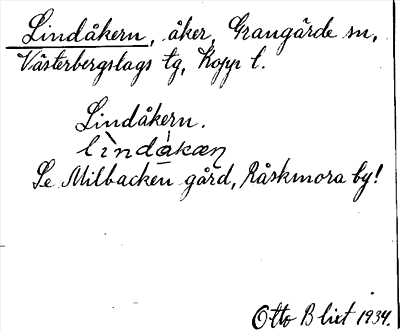 Lindåkern, åker, Grangärde sn,
Västerbergslags tg, Kopp l.
Lindåkern.
lìndåkæṇ
Se Milbacken gård, Råskmora by!
Otto Blixt 1934.